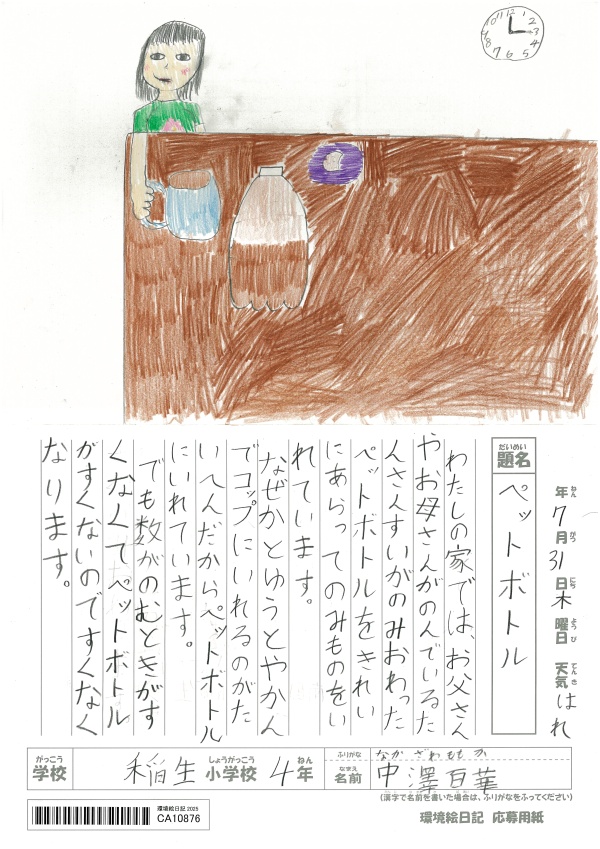 10 11 12 1 2 3 4 5 6 7 8 9
年 7 月 31 日 木 曜日 天気 はれ
ねん がつ にち ようび てんき
だいめい
題名
ペットボトル
わたしの家では、お父さん
やお母さんがのんでいるた
んさんすいがのみおわった
ペットボトルをきれい
にあらってのみものをい
れています。
なぜかとゆうとやかん
でコップにいれるのがた
いへんだからペットボトル
にいれています。
でも数がのむときがす
くなくてペットボトル
がすくないのですくなく
なります。
がっこう
学校
稲生
しょうがっこう
小学校
4
ねん
年
ふりがな
なかざわももか
なまえ
名前
中澤百華
(漢字で名前を書いた場合は、ふりがなをふってください)
環境絵日記 2025
CA10876
環境絵日記 応募用紙